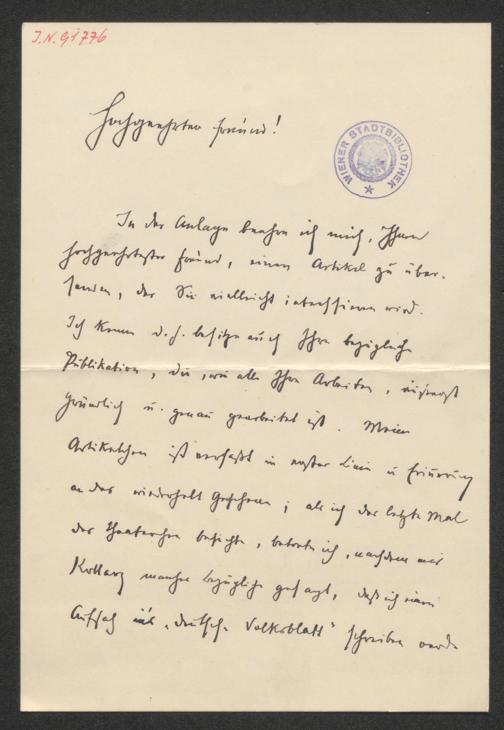 J.N. 91776
Hochgeehrter Freund!
WIENER STADTBIBLIOTHEK
In der Anlage beehre ich mich, Ihnen
hochgeehrtester Freund, einen Artikel zu über-
senden, der Sie vielleicht interessieren wird.
Ich kenne d. h. besitze auch Ihre bezügliche
Publikation, die, wie alle Ihre Arbeiten, äußerst
gründlich u. genau gearbeitet ist. Mein
Artikelchen ist verfaßt in erster Linie in Erinnerung
an das wiederholt Gesehene; als ich das letzte Mal
das besuchte, betonte ich, nachdem mir
manches bezügliche gesagt, daß ich einen
Aufsatz in's "Deutsche Volksblatt" schreiben werde